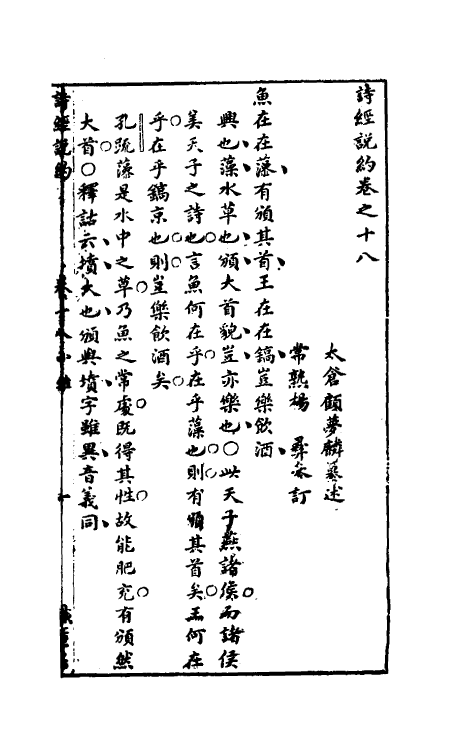 詩經說約卷之十八
太倉顧夢麟纂述
常熟楊彝參訂
魚在在藻有頒其首王在在鎬豈樂飲酒
興也藻水草也頒大首貌豈亦樂也○此天子燕諸侯而諸侯
美天子之詩也言魚何在乎在乎藻也則有頒其首矣王何在
乎在乎鎬京也則豈樂飲酒矣
孔疏藻是水中之草乃魚之常處既得其性故能肥充有頒然
大首○釋詁云墳大也頒與墳字雖異音義同
詩經說約 卷十八小雅 一